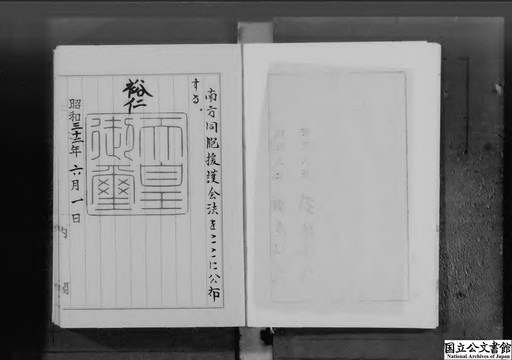 南方同胞援護会法をここに公布
する。
裕仁
天皇御璽
昭和三十二年六月一日
内閣
国立公文書館
National Archives of Japan